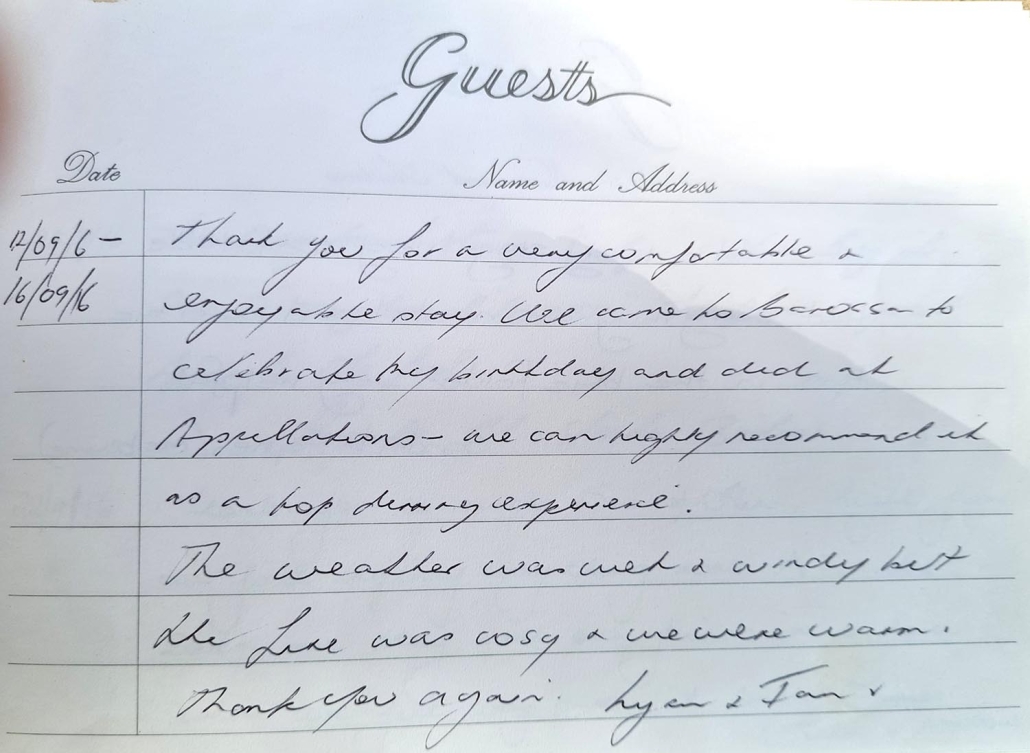 Guests
Date Name and Address
12/09/6 – Thank you for a very comfortable &
16/09/16 enjoyable stay. We came to Barossa to
celebrate my birthday and died at
Appellations – we can highly recommend it
as a top dining experience.
The weather was wet & windy but
the fire was cosy & we were warm.
Thank you again. Lyn & Ian